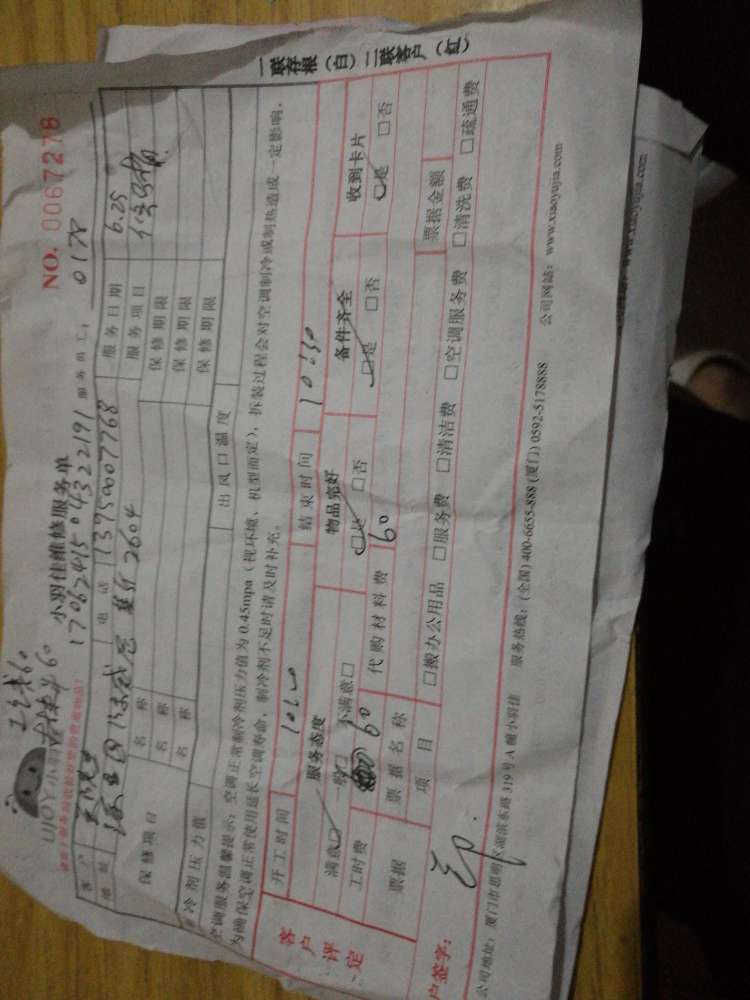 一联存根（白）二联客户（红）
工时费60
材料60
NO. 0067278
UJOY小羽佳
小羽佳维修服务单
1706241504322191 服务员工： 0178
客户 电话 13950007768 服务日期 6.25
地址 2604 服务项目
保修项目 名称 保修期限
名称 保修期限
名称 保修期限
冷剂压力值 出风口温度
空调服务温馨提示：空调正常制冷剂压力值为0.45mpa（视环境、机型而定），拆装过程会对空调制冷或制热造成一定影响，
为确保空调正常使用延长空调寿命，制冷剂不足时请及时补充。
客户评定
开工时间 1020 结束时间 10:30
服务态度 物品完好 备件齐全 收到卡片
满意□ 一般□ 不满意□ □是 □否 □是 □否 □是 □否
工时费 60 代购材料费 60
票据 票据名称 票据金额
项目 □搬办公用品 □服务费 □清洁费 □空调服务费 □清洗费 □疏通费
户签字：
公司地址：厦门市思明区湖滨东路319号A幢小羽佳 服务热线：(全国) 400-6655-888 (厦门) 0592-5178888 公司网站：www.xiaoyujia.com
www.xiaoyujia.com